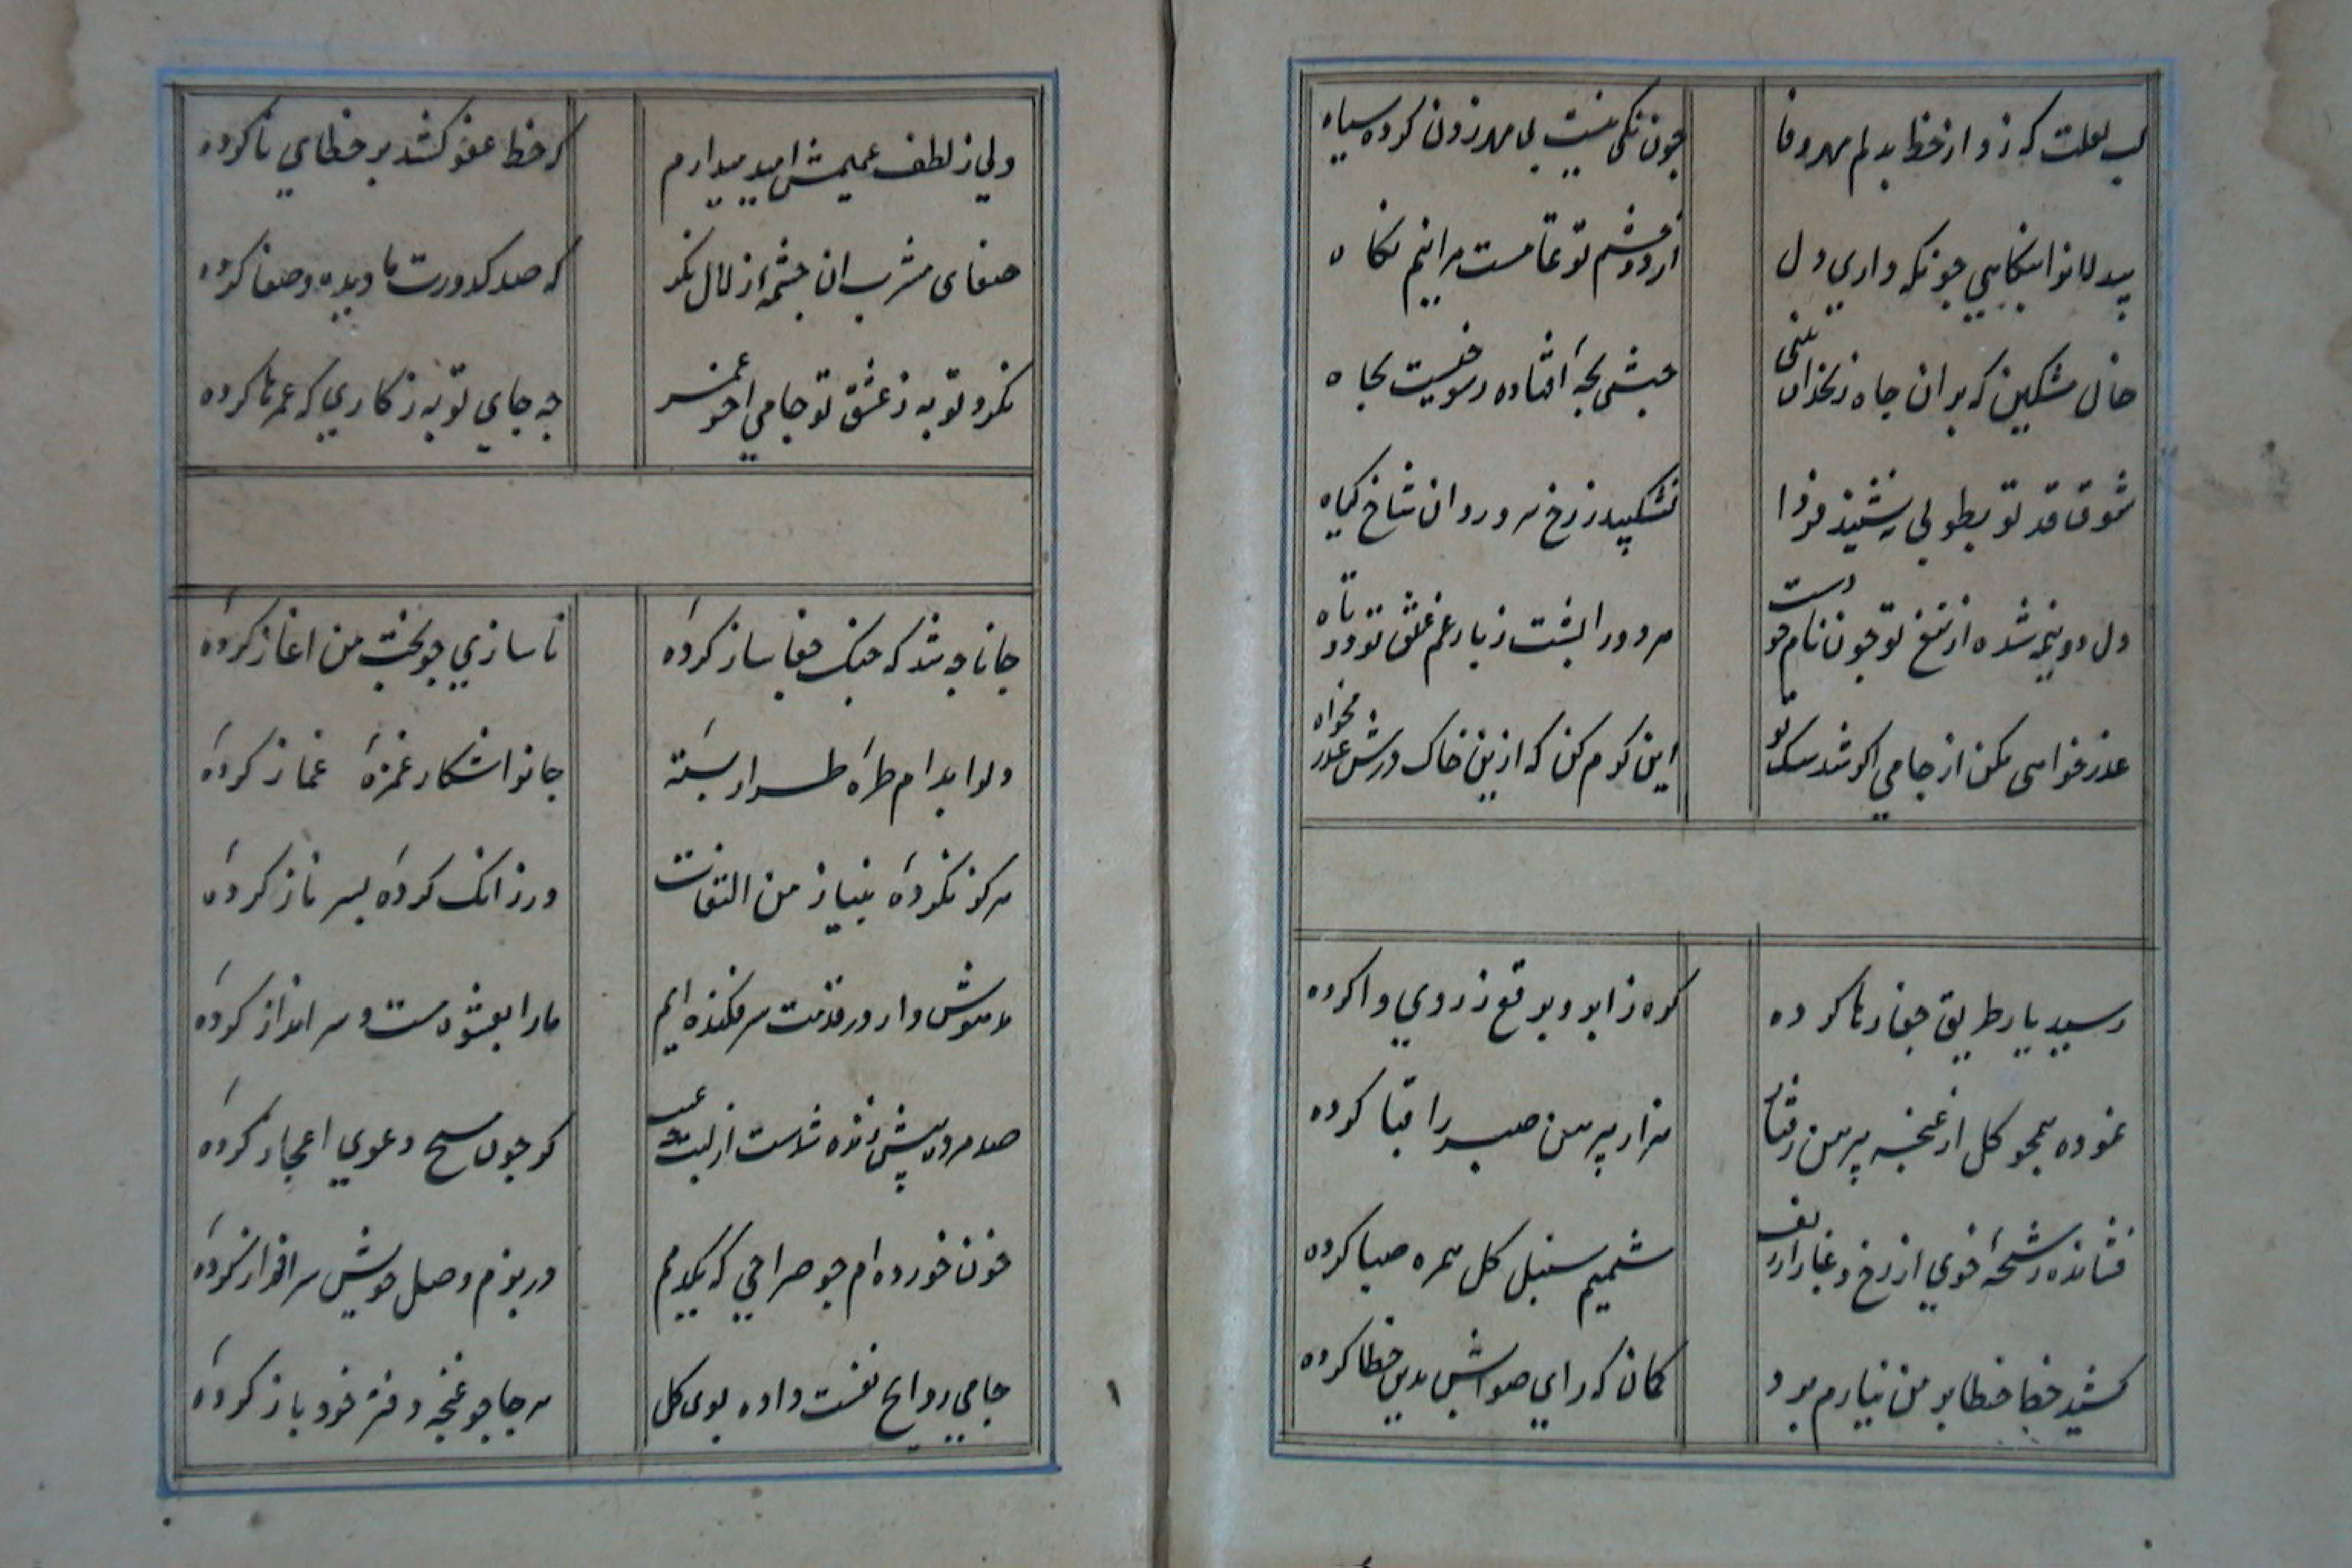 لب لعلت که زد از خط بدلم مهر وفا
چون نگین نیست بی مهر زدن کرده سیاه
بیدلانرا بنگاهی چو نکه داری دل
از دو چشم تو تمامست مرا نیم نگاه
خال مشکین که بر آن چاه زنخدان بینی
حبشی بچه افتاده رسوفیست بچاه
شوق قد تو بطوبی ننشیند فردا
نشکیبد ز رخ سرو روان شاخ گیاه
دل دو نیم شده از تیغ تو چون نام خودست
مر دو را پشت ز بار غم عشق تو دوتاه
عذر خواهی مکن از جامی اگر شد سک تو
این کرم کن که ازین خاک درش عذر مخواه
رسید یار طریق جفا رها کرده
کره ز ابرو و برقع ز روی وا کرده
نموده همچو کل از غنچه پیرهن رفتار
هزار پیرهن صبر را قبا کرده
فشانده رشحه خوی از رخ و غبار از زلف
شمیم سنبل کل همره صبا کرده
کشید خط خطا بر من نیارم برد
کمان که رای صوابش بدین خطا کرده
ولی ز لطف عمیمش امید میدارم
که خط عفو کشد بر خطای نا کرده
صفای مشرب آن چشمه زلال نکر
که صد کدورت ما دیده و صفا کرده
نکرد توبه ز عشق تو جامی آخر عمر
چه جای توبه ز کاری که عمرها کرده
جانا چه شد که چنک جفا ساز کرده
ناسازی چو بخت من آغاز کرده
دلرا بدام طره طرار بسته
جانرا شکار غمزه غماز کرده
هرکز نکرده بنیاز من التفات
ور زانک کرده بسر ناز کرده
مدهوش وار در قدمت سر فکنده ایم
ما را بعشوه مست و سرانداز کرده
صد مرده بیش زنده شدست از لبت
کر چون مسیح دعوی اعجاز کرده
خون خورده ام چو صراحی که یکدم
در بزم وصل خویش سرافراز کرده
جامی روایح نفست داده بوی کل
هرجا چو غنچه دفتر خود باز کرده